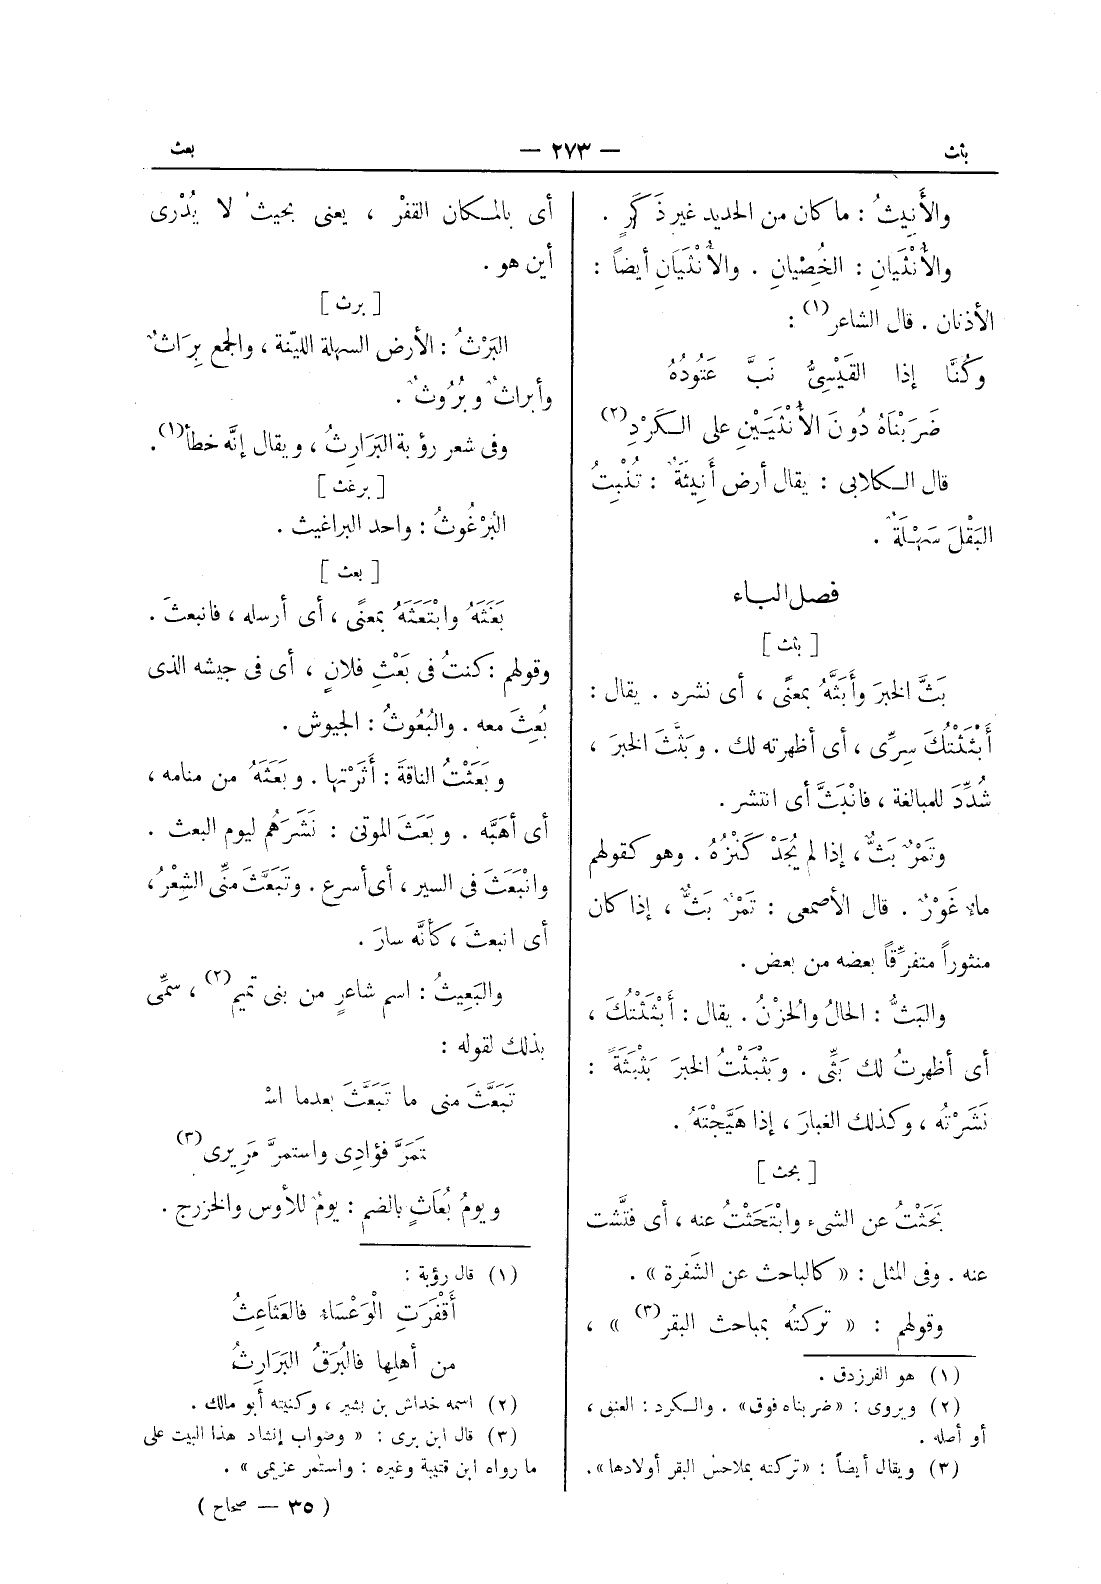 بثث
— ٢٧٣ —
بعث
والأَنِيثُ : ما كان من الحديد غير ذَكَرٍ .
والأُنْثَيَانِ : الخُصْيانِ . والأُنْثَيَانِ أيضاً :
الأذنان . قال الشاعر(١) :
وكُنَّا إذا القَيْسِىُّ نَبَّ عَتُودُهُ
ضَرَبْنَاهُ دُونَ الأُنْثَيَيْنِ على الكَرْدِ(٢)
قال الكلابى : يقال أرض أَنِيثَةٌ : تُنْبِتُ
البَقْلَ سَهْلَةٌ .
فصل الباء
[ بثث ]
بَثَّ الخبرَ وأَبَثَّهُ بمعنًى ، أى نشره . يقال :
أَبْثَثْتُكَ سِرِّى ، أى أظهرته لك . وبَثَّثَ الخبرَ ،
شُدِّدَ للمبالغة ، فانْبَثَّ أى انتشر .
وتَمْرٌ بَثٌّ ، إذا لم يُجَدْ كَنْزُهُ . وهو كقولهم
ماء غَوْرٌ . قال الأصمعى : تَمْرٌ بَثٌّ ، إذا كان
منثوراً متفرِّقاً بعضه من بعض .
والبَثُّ : الحالُ والحُزْنُ . يقال : أَبْثَثْتُكَ ،
أى أظهرتُ لك بَثِّى . وبَثْبَثْتُ الخبرَ بَثْبَثَةً :
نَشَرْتُه ، وكذلك الغبارَ ، إذا هَيَّجْتَهُ .
[ بحث ]
بَحَثْتُ عن الشىء وابْتَحَثْتُ عنه ، أى فتَّشت
عنه . وفى المثل : « كالباحث عن الشَفرة » .
وقولهم : « تركتُه بمباحث البقر(٣) » ،
(١) هو الفرزدق .
(٢) ويروى : «ضربناه فوق» . والكرد : العنق ،
أو أصله .
(٣) ويقال أيضاً : «تركته بملاحس البقر أولادها» .
أى بالمكان القفْر ، يعنى بحيثُ لا يُدْرى
أين هو .
[ برث ]
البَرْثُ : الأرض السهلة الليّنة ، والجمع بِرَاثٌ
وأبراثٌ وبُرُوثٌ .
وفى شعر رؤبة البَرَارِثُ ، ويقال إنَّه خطأ(١) .
[ برغث ]
البُرْغُوثُ : واحد البراغيث .
[ بعث ]
بَعَثَهُ وابْتَعَثَهُ بمعنًى ، أى أرسله ، فانبعثَ .
وقولهم : كنتُ فى بَعْثِ فلانٍ ، أى فى جيشه الذى
بُعِثَ معه . والبُعُوثُ : الجيوش .
وبَعَثْتُ الناقةَ : أَثَرْتها . وبَعَثَهُ من منامه ،
أى أهَبَّه . وبَعَثَ الموتى : نَشَرَهُم ليوم البعث .
وانْبَعَثَ فى السير ، أى أسرع . وتَبَعَّثَ منِّى الشِعْرُ ،
أى انبعثَ ، كأنَّه سارَ .
والبَعِيثُ : اسم شاعرٍ من بنى تميم(٢) ، سمِّى
بذلك لقوله :
تَبَعَّثَ منى ما تَبَعَّثَ بعدما اسْ
تَمَرَّ فؤادِى واستمرَّ مَرِيرى(٣)
ويومُ بُعَاثٍ بالضم : يومٌ للأوس والخزرج .
(١) قال رؤبة :
أَقْفَرَتِ الْوَعْسَاء فالعَثَاعِثُ
من أهلِها فالبُرَقُ البَرَارِثُ
(٢) اسمه خداش بن بشير ، وكنيته أبو مالك .
(٣) قال ابن برى : « وصواب إنشاد هذا البيت على
ما رواه ابن قتيبة وغيره : واستمر عزيمى » .
( ٣٥ — صحاح )